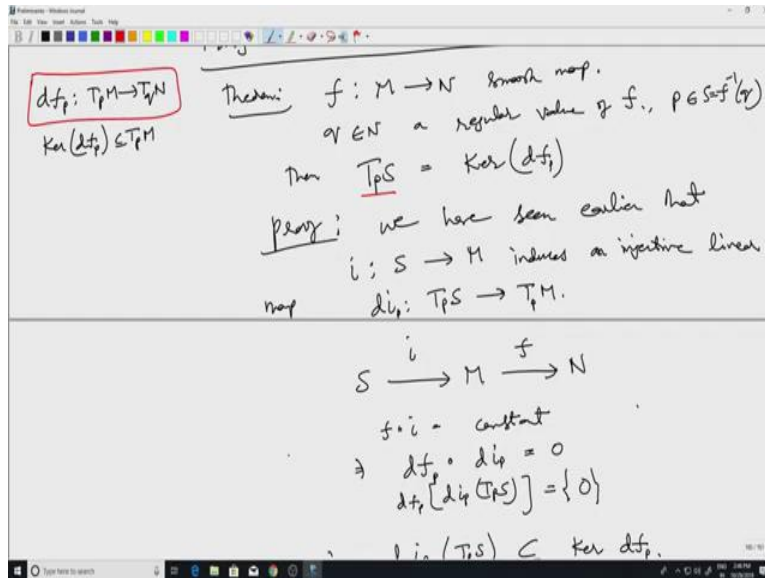 Preliminaries - Windows Journal
File Edit View Insert Actions Tools Help
df_p : T_pM → T_qN
Ker(df_p) ⊆ T_pM
Theorem: f : M → N smooth map.
q ∈ N a regular value of f., p ∈ S = f^{-1}(q)
Then T_pS = Ker(df_p)
proof: we have seen earlier that
i : S → M induces an injective linear
map di_p : T_pS → T_pM.
S \xrightarrow{i} M \xrightarrow{f} N
f∘i = constant
⇒ df_p ∘ di_p = 0
df_p[di_p(T_pS)] = {0}
di_p(T_pS) ⊂ Ker df_p.
Type here to search